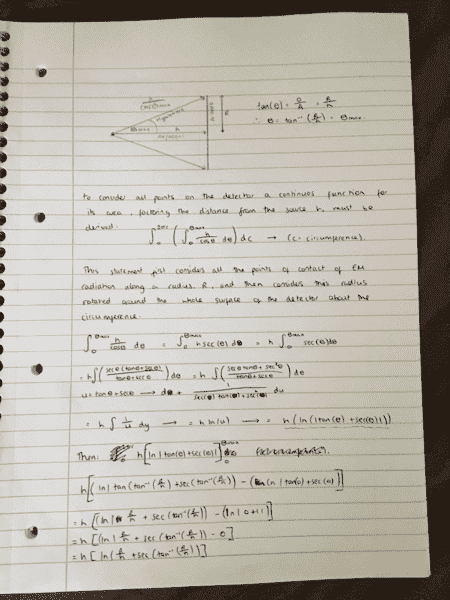 h
cos(θmax)
θmax
h
R
tan(θ) = O/A = R/h
∴ θ = tan⁻¹(R/h) = θmax.
To consider all points on the detector a continuos function for
its area, factoring the distance from the source h, must be
derived:
∫₀^2πr (∫₀^θmax h/cosθ dθ) dc → (c = circumference).
This statement first considers all the points of contact of EM
radiation along a radius, R, and then considers this radius
rotated around the whole surface of the detector about the
circumference.
∫₀^θmax h/cosθ dθ = ∫₀^θmax h sec(θ) dθ = h ∫₀^θmax sec(θ) dθ
= h∫(secθ(tanθ+secθ)/tanθ+secθ) dθ = h ∫(secθtanθ+sec²θ/tanθ+secθ) dθ
u = tanθ+secθ → dθ = 1/sec(θ)tan(θ)+sec²(θ) du
= h ∫ 1/u du → = h ln|u| → = h(ln(|tan(θ)+sec(θ)|))
Then: h[ln|tan(θ)+sec(θ)|]₀^θmax
h[(ln|tan(tan⁻¹(R/h)+sec(tan⁻¹(R/h))) − (ln|tan(0)+sec(0)]
= h[(ln|R/h + sec(tan⁻¹(R/h)) − (ln|0+1|]
= h[(ln|R/h + sec(tan⁻¹(R/h)) − 0]
= h[ln(R/h + sec(tan⁻¹(R/h))]